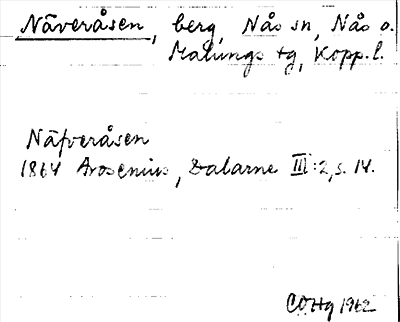 Näveråsen, berg, Nås sn, Nås o.
Malungs tg, Kopp.l.
Näfveråsen
1864 Arosenius, Dalarne III:2, s. 14.
COHg 1962